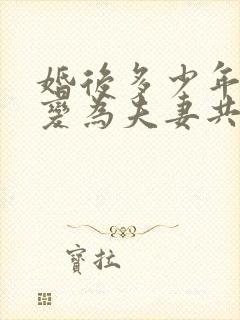 婚後多少年
變為夫妻共
寶拉